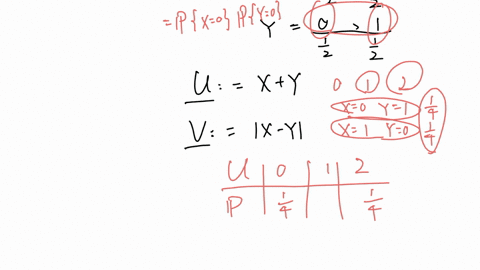 = P{X=0} P{Y=0}
Y = 0, 1
1/2 1/2
U: = X+Y 0 1 2
X=0 Y=1 1/4
V: = |X-Y| X=1 Y=0 1/4
U 0 1 2
P 1/4 1/4